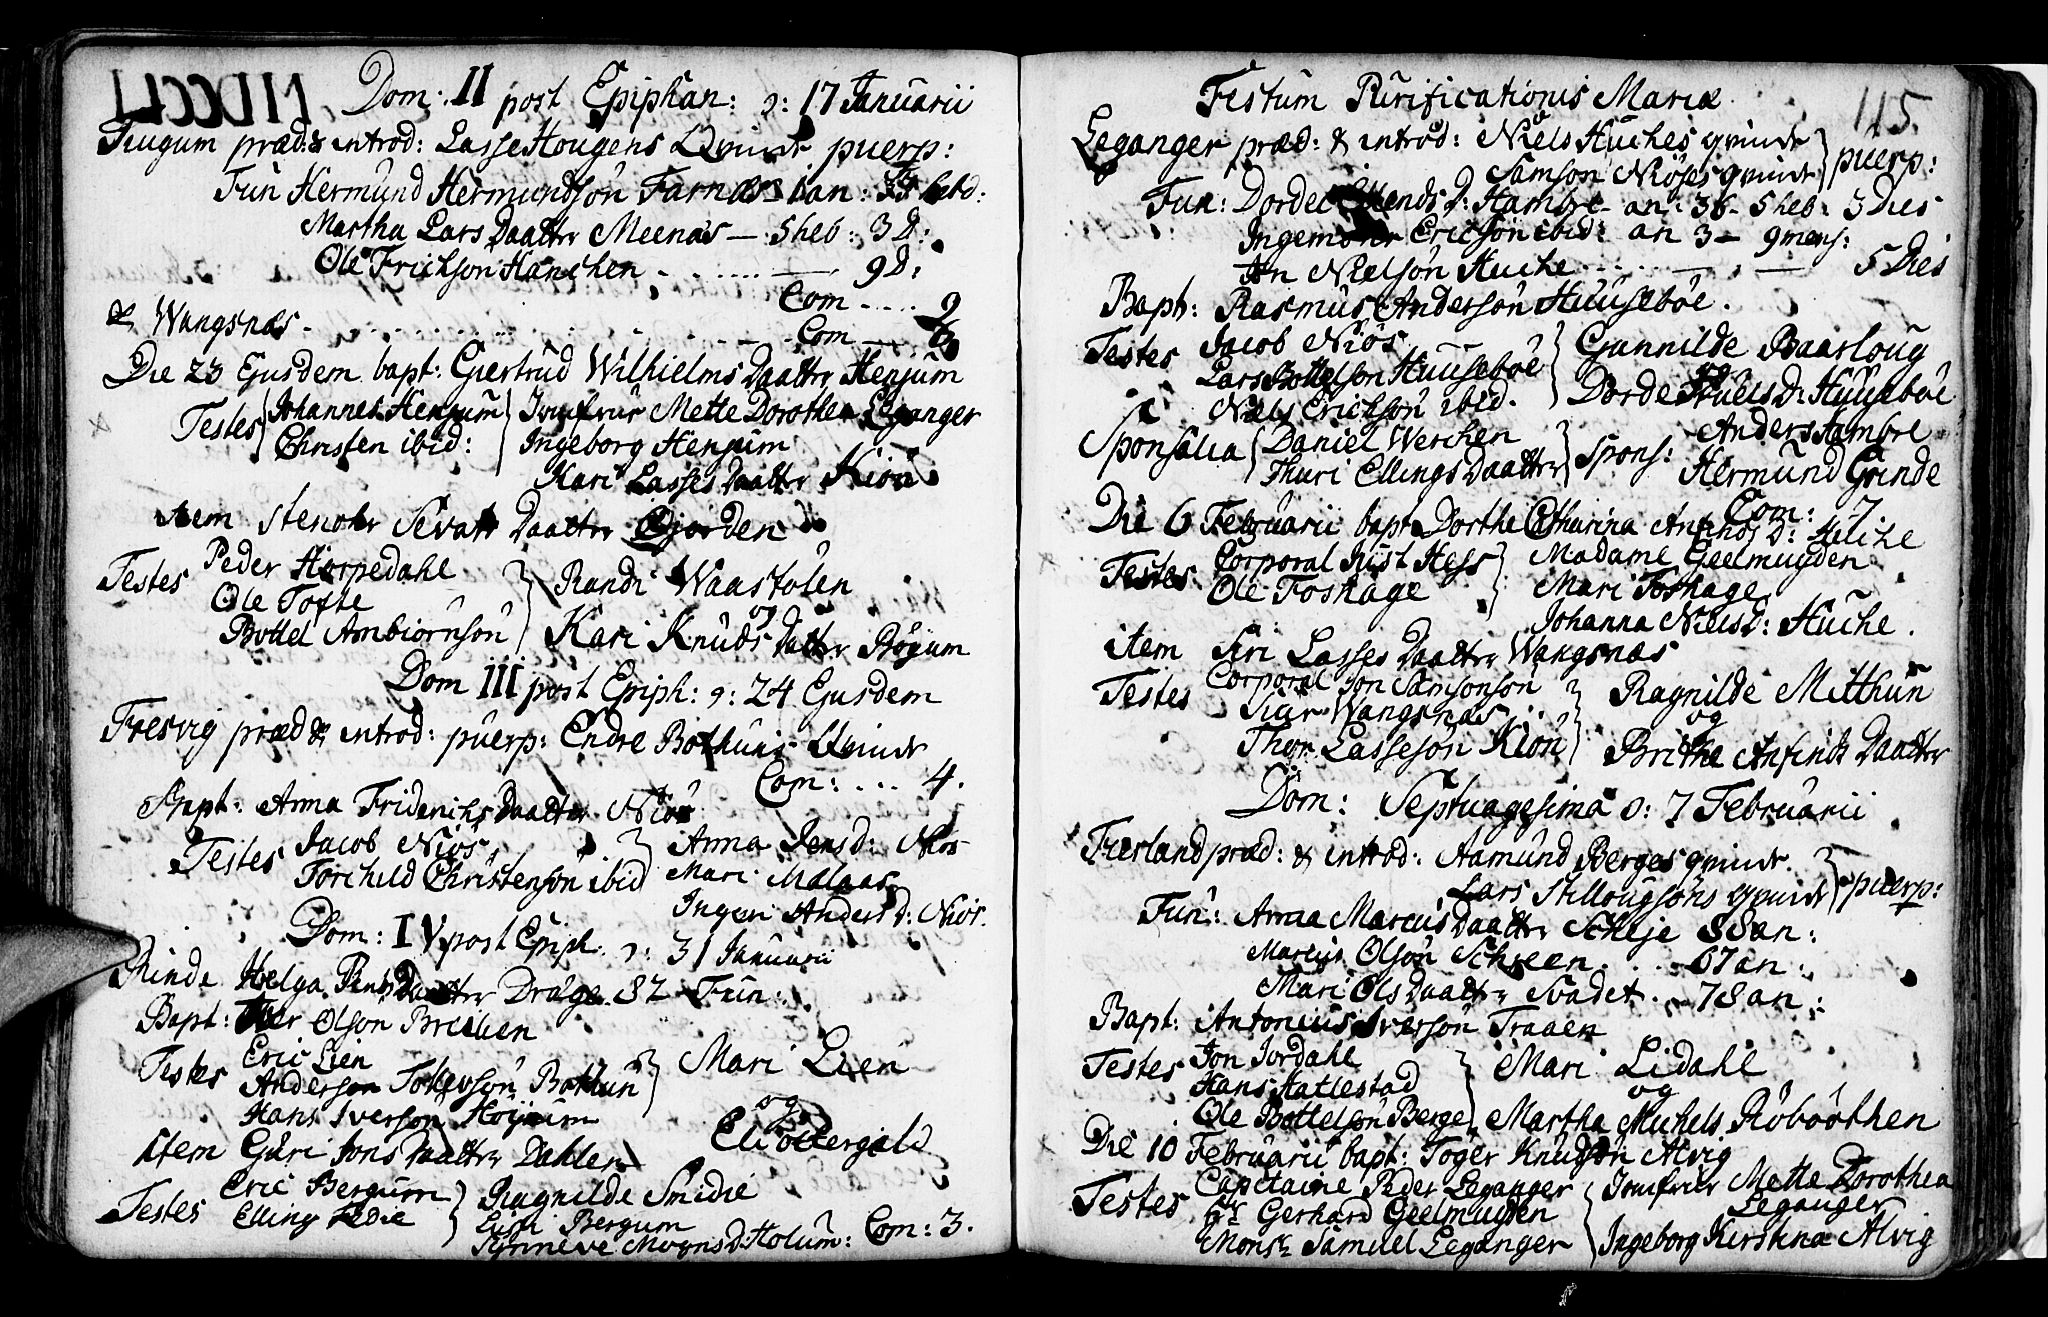 MDCCLI Dom: II post Epiphan: ɔ: 17 Januarii
Tiugum præd: & introd: Lasse Hougens Qvinde puerp:
Fun Hermund Hermundsön Farnæs 1 an: hebd:
Martha Lars Daatter Meenæs — 5 heb: 3 D:
Ole Erichson Hanchen - - - - — 9 D:
Com - - - - 9
& Wangsnæs - - - - Com — 6
Die 23 Ejusdem bapt: Giertrud Wilhielms Daatter Henjum
Testes Johannes Henjum Jomfrur Mette Dorothea Leganger
Christen ibid: Ingeborg Henjum
Kari Lasses Daatter Kiön
item Stenohr Sevatt Daatter Gjorden
Testes Peder Horpedahl Randi Waastölen
Ole Tofte og
Bottel Ambiörnsön Kari Knuds Datter Bøyum
Dom III post Epiph: ɔ: 24 Ejusdem
Fresvig præd & introd: puerp: Endre Bothuns Qvinde
Com: . . . . 4.
Bapt: Anna Friderichs Daatter Niös
Testes Jacob Niös Anna Jens d: Niös
Torchild Christensön ibid Mari Malaas
Ingeri Anders d: Niös.
Dom: IV post Epiph. ɔ: 31 Januarii
Rinde Helga Daatter Drage. 82 Fun:
Bapt: Iver Olson Breilien
Testes Eric Lien Mari Lien
Anderson Tollevsön Bothun
Hans Iverson Höyum og
item Guri Jons Daatter Dahlen Eli Ottergeld
Testes Eric Bergum Ragnilde Smidie
Elling Fedie Bergum
Synneve Mogns d: Holum: Com: 3.
Festum Purificationis Mariæ 115.
Leganger præd: & introd: Niels Huches qvinde puerp:
Samson Niöses qvinde
Fun: Dordei Ellends D: Hambre an: 36 - 5 heb: 3 Dies
Ingemohr Ericsön ibid: an 3 — 9 mens:
An Nielsön Huche . . . . — 5 Dies
Bapt: Rasmus Andersön Huuseböe.
Testes Jacob Niös Gunnilde Baarloug
Lars Bottelson Huuseböe og
Niels Erichsön ibid. Dorde Niels D: Huuseböe
Sponsalia Daniel Werchen Spons: Anders Hambre
Thuri Ellings Daatter Hermund Grinde
Com: 7
Die 6 Februarii bapt: Dorthe Catharina Anfinds D: Huche
Testes Corporal Rist Hess Madame Geelmuyden
Ole Foshage Mari Foshage
Johanna Niels D: Huche.
item Siri Lasses Daatter Wangsnæs
Testes Corporal Jon Samsonson Ragnilde Mitthun
Siur Wangsnæs og
Thor Lassesön Kiön Brithe Anfinds Daatter
Dom: Septuagesima ɔ: 7 Februarii
Fierland præd: & introd: Aamund Berges qvinde. puerp:
Lars Stillougsöns qvinde
Fun: Anna Marcus Daatter Scheje 88 an:
Marcus Olson Schreen. . . 67 an:
Mari Ols Daatter Svadet. - 78 an:
Bapt: Antonius Iversön Traaen
Testes Jon Jordahl Mari Lidahl
Hans Hatlestad og
Ole Bottelson Berge. Martha Michels Röboöthen
Die 10 Februarii bapt: Töger Knudsön Alvig
Testes Capitaine Peder Leganger Jomfrur Mette Dorothea
Hr Gerhard Geelmuyden Leganger
Monsr Samuel Leganger Ingeborg Kirstina Alvig